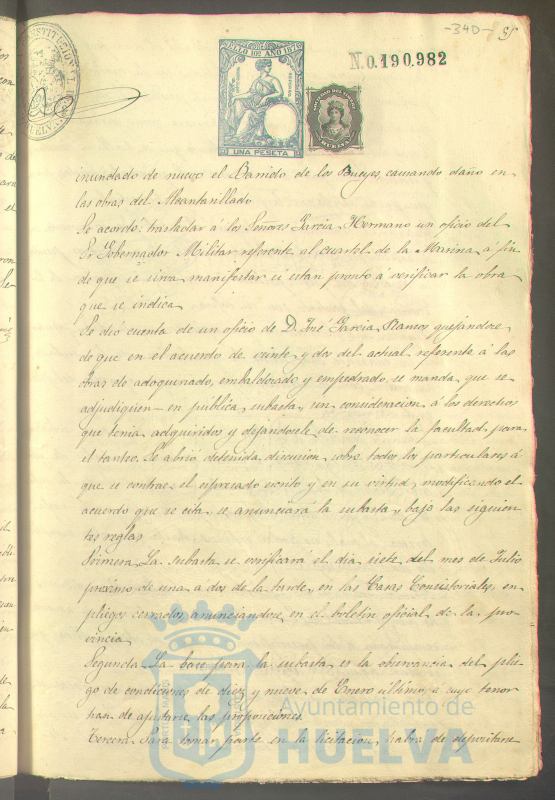 -340- 
SELLO 10º AÑO 1876
UNA PESETA
N.0.190.982
inundado de nuevo el Barrido de los Bueyes, causando daño en
las obras del Alcantarillado
Se acordó trasladar á los Señores Garcia Hermano un oficio del
Er Gobernador Militar referente al cuartel de la Marina á fin
de que se sirva manifestar si estan pronto á verificar la obra
que se indica
Se dió cuenta de un oficio de D. José Garcia Ramos quejandose
de que en el acuerdo de veinte y dos del actual referente á las
obras de adoquinado, embaldosado y empedrado, se manda que se
adjudiquen en pública subasta, sin consideracion á los derechos
que tenia adquiridos y dejandosele de reconocer la facultad para
el tanteo. Se abrió detenida discusion sobre todos los particulares á
que se contrae el espresado escrito y en su virtud, modificando el
acuerdo que se cita, se anunciará la subasta bajo las siguien
tes reglas
Primera. La subasta se verificará el dia siete del mes de Julio
proximo de una a dos de la tarde, en las Casas Consistoriales, en
pliegos cerrados anunciandose en el boletin oficial de la pro
vincia
Segunda. La base para la subasta es la observancia del plie
go de condiciones de diez y nueve de Enero último, a cuyo tenor
han de ajustarse las proposiciones
Tercera. Para tomar parte en la licitacion, habrá de depositarse
Ayuntamiento de
HUELVA